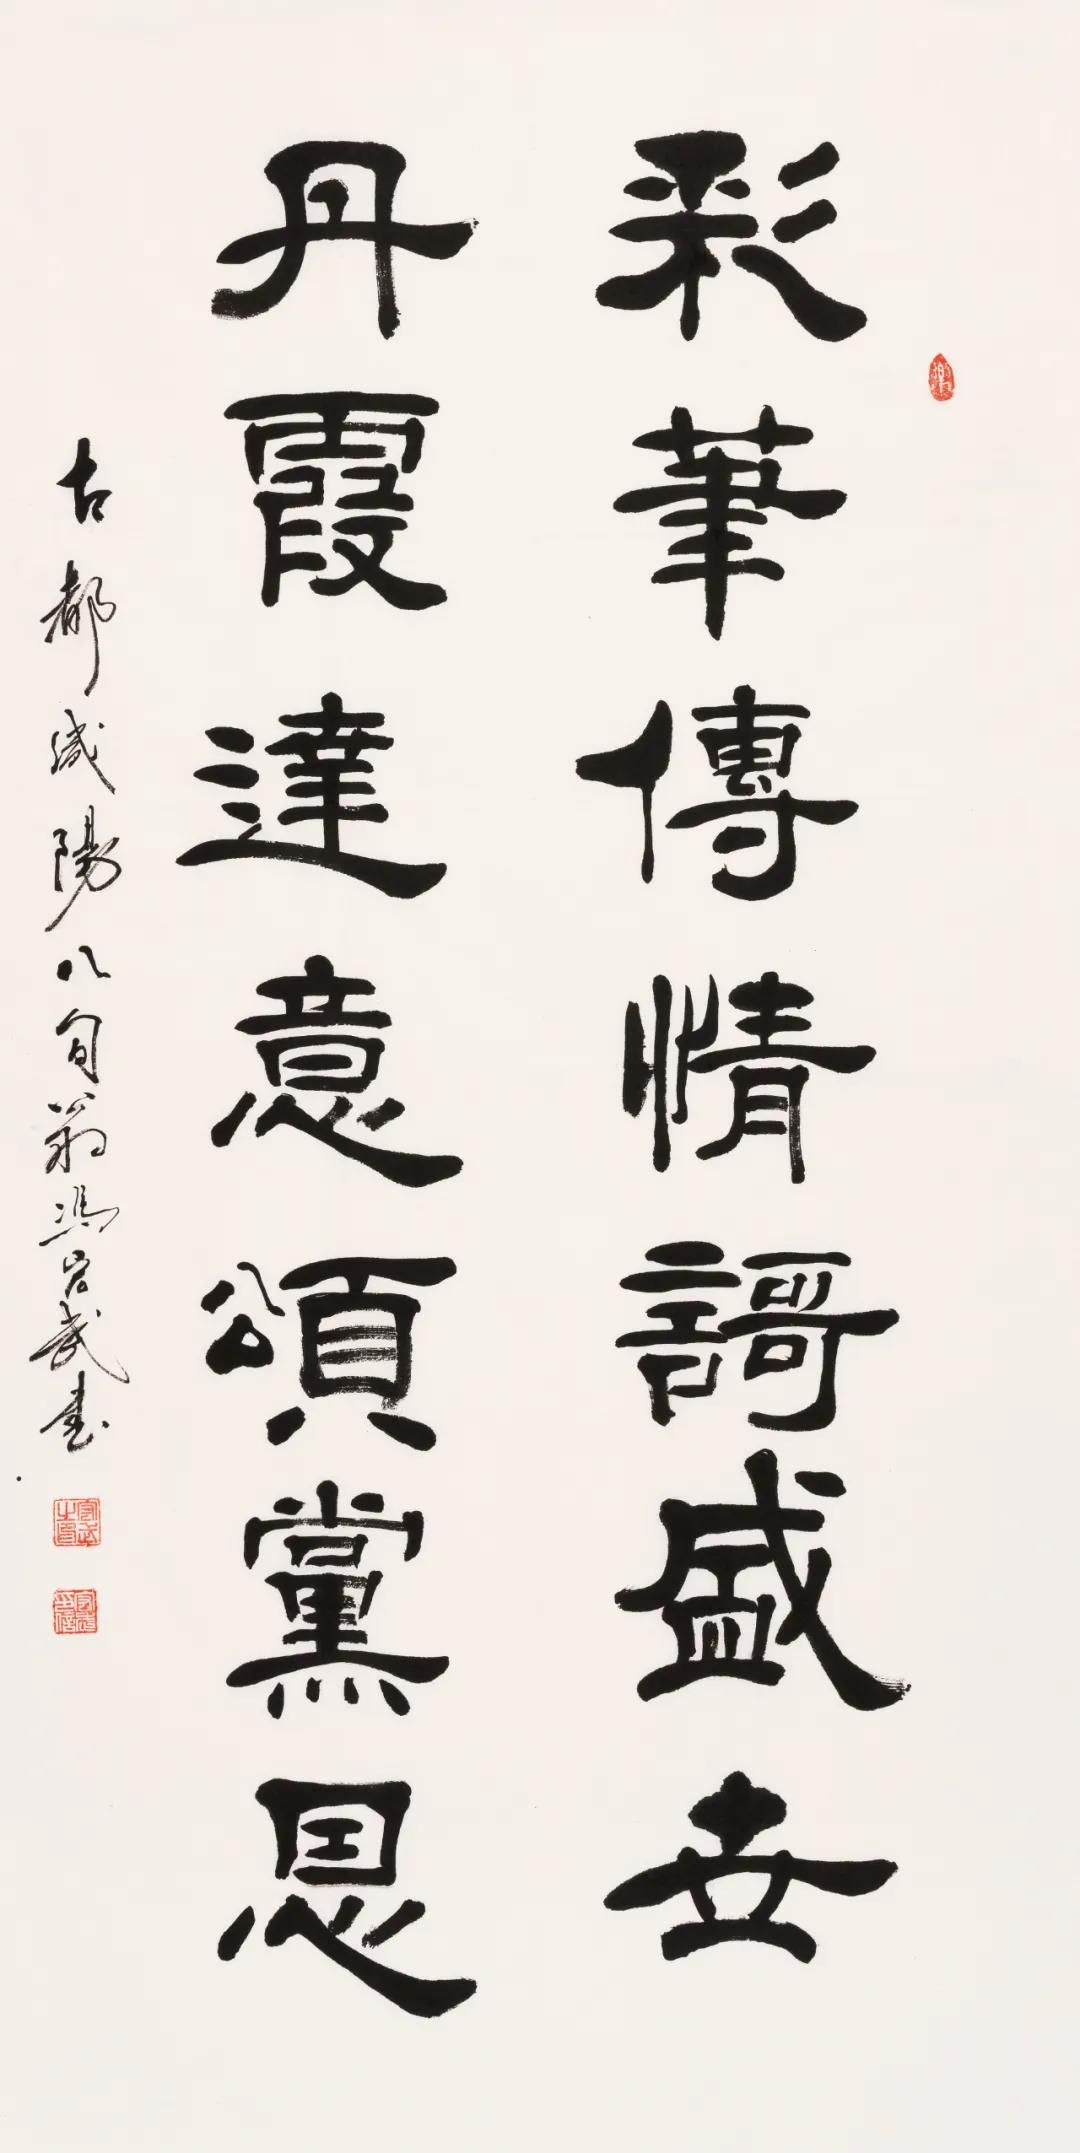 彩筆傳情謌盛世
丹霞達意頌黨恩
古都咸陽八旬翁馮宏武書